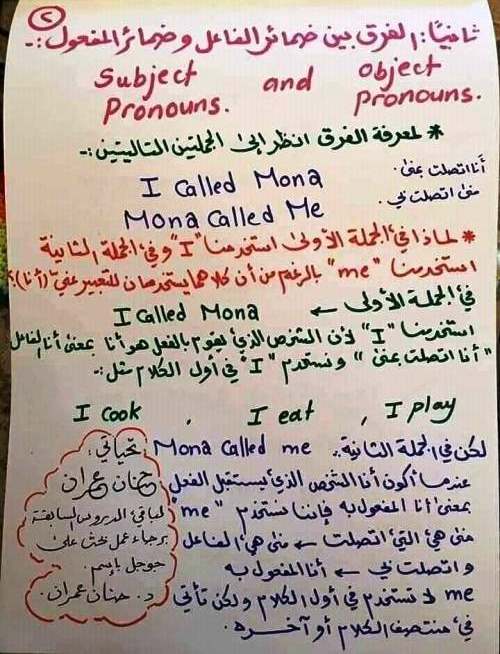 ٢
ثانيًا: الفرق بين ضمائر الفاعل وضمائر المفعول :-
Subject Pronouns. and object Pronouns.
* لمعرفة الفرق انظر إلى الجملتين التاليتين :-
I Called Mona أنا اتصلت بمنى.
Mona Called Me منى اتصلت بي.
* لماذا في الجملة الأولى استخدمنا "I" وفي الجملة الثانية
استخدمنا "me" بالرغم من أن كلاهما يستخدمان للتعبير عني (أنا)؟
في الجملة الأولى ← I Called Mona
استخدمنا "I" لأن الشخص الذي يقوم بالفعل هو أنا بمعنى أنا الفاعل
"أنا اتصلت بمنى" ونستخدم "I" في أول الكلام مثل :-
I cook , I eat , I play
لكن في الجملة الثانية .. Mona Called me
عندما أكون أنا الشخص الذي يستقبل الفعل
بمعنى أنا المفعول به فإننا نستخدم "me"
منى هي التي اتصلت ← منى هي الفاعل
واتصلت بي ← أنا المفعول به
me لا تستخدم في أول الكلام ولكن تأتي
في منتصف الكلام أو آخره.
تحياتي:
حنان عمران
لباقي الدروس السابقة
برجاء عمل بحث على
جوجل باسم.
د. حنان عمران.